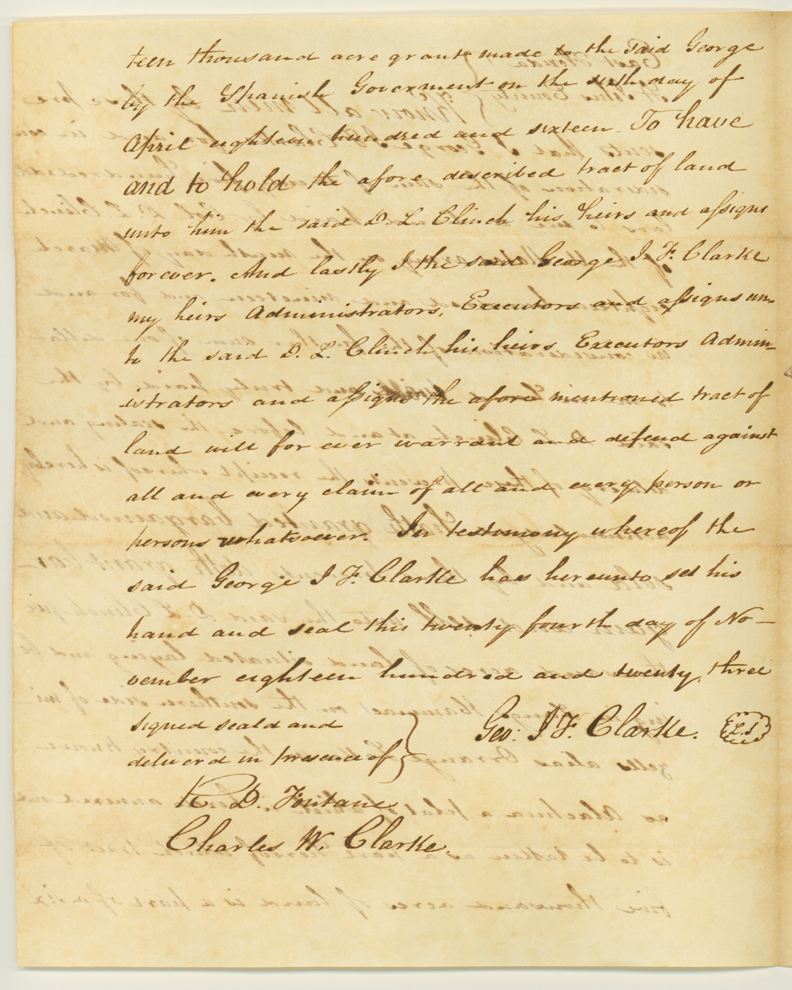 teen thousand acre grant made to the said George
by the Spanish Goverment on the sixth day of
April eighteen hundred and sixteen. To have
and to hold the afore described tract of land
unto him the said D. L. Clinch his heirs and assigns
forever. And lastly I the said George I. F. Clarke
my heirs Administrators, Executors and assigns un-
to the said D. L. Clinch his heirs Executors Admin-
istrators and assigns the afore mentioned tract of
land will for ever warrant and defend against
all and every claim of all and every person or
persons whatsoever. In testimony whereof the
said George I F. Clarke has hereunto set his
hand and seal this twenty fourth day of No-
vember eighteen hundred and twenty three
signed seald and
deliverd in presence of
Geo: I F. Clarke. L.S
D. Fontane
Charles W. Clarke.